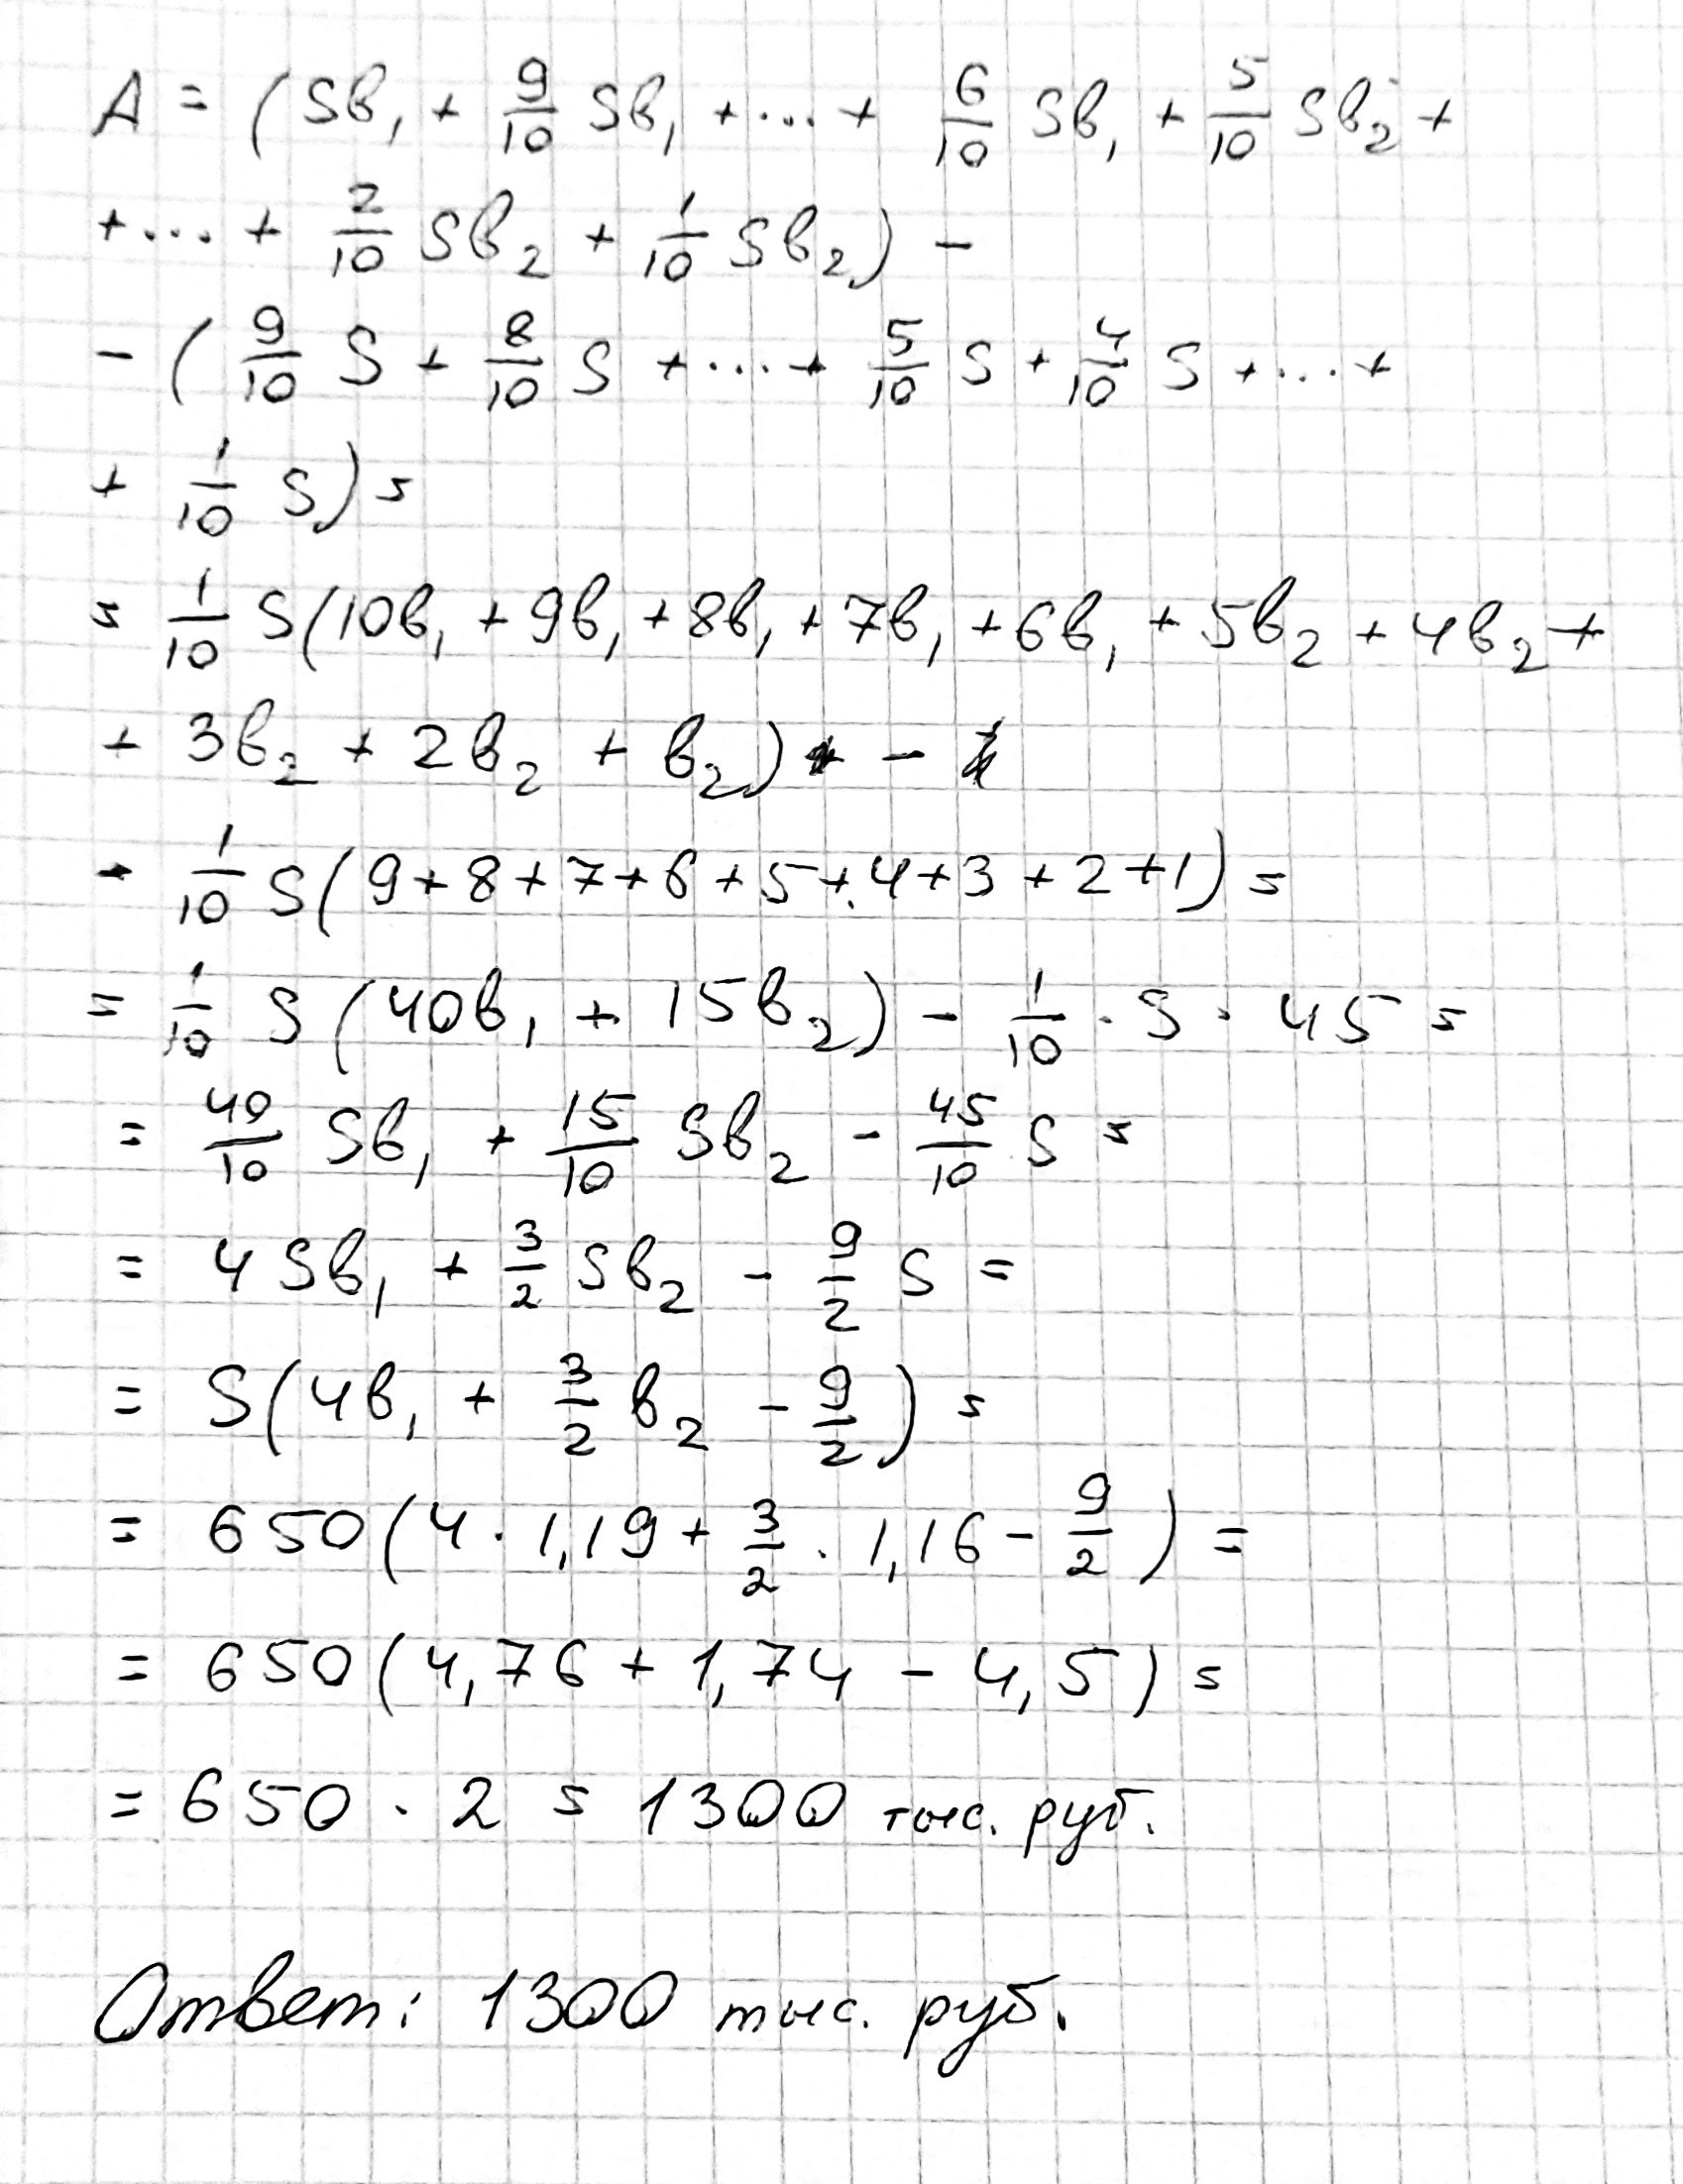 A = (Sb₁ + 9/10 Sb₁ + ... + 6/10 Sb₁ + 5/10 Sb₂ +
+ ... + 2/10 Sb₂ + 1/10 Sb₂) -
- (9/10 S + 8/10 S + ... + 5/10 S + 4/10 S + ... +
+ 1/10 S) =
= 1/10 S(10b₁ + 9b₁ + 8b₁ + 7b₁ + 6b₁ + 5b₂ + 4b₂ +
+ 3b₂ + 2b₂ + b₂) -
- 1/10 S(9+8+7+6+5+4+3+2+1) =
= 1/10 S(40b₁ + 15b₂) - 1/10 · S · 45 =
= 40/10 Sb₁ + 15/10 Sb₂ - 45/10 S =
= 4Sb₁ + 3/2 Sb₂ - 9/2 S =
= S(4b₁ + 3/2 b₂ - 9/2) =
= 650(4 · 1,19 + 3/2 · 1,16 - 9/2) =
= 650(4,76 + 1,74 - 4,5) =
= 650 · 2 = 1300 тыс. руб.
Ответ: 1300 тыс. руб.